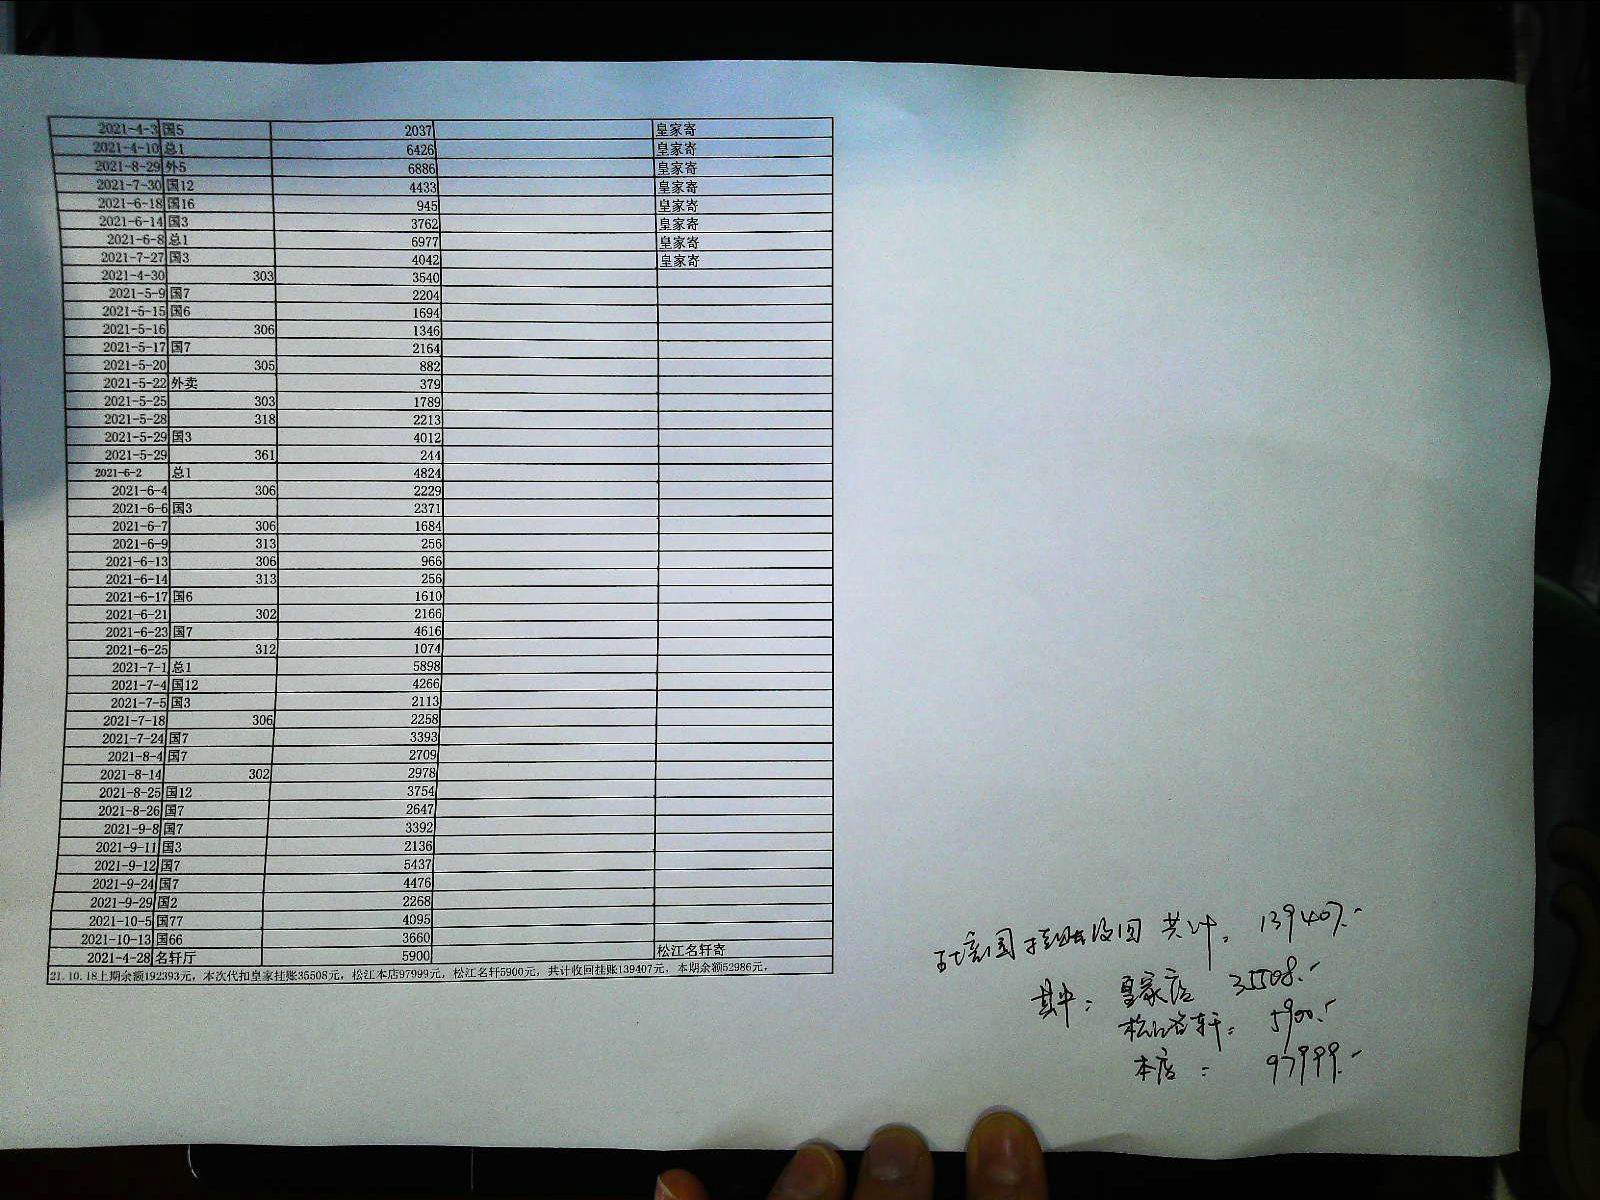 2021-4-3 国5 2037 皇家寄
2021-4-10 总1 6426 皇家寄
2021-8-29 外5 6886 皇家寄
2021-7-30 国12 4433 皇家寄
2021-6-18 国16 945 皇家寄
2021-6-14 国3 3762 皇家寄
2021-6-8 总1 6977 皇家寄
2021-7-27 国3 4042 皇家寄
2021-4-30 303 3540
2021-5-9 国7 2204
2021-5-15 国6 1694
2021-5-16 306 1346
2021-5-17 国7 2164
2021-5-20 305 882
2021-5-22 外卖 379
2021-5-25 303 1789
2021-5-28 318 2213
2021-5-29 国3 4012
2021-5-29 361 244
2021-6-2 总1 4824
2021-6-4 306 2229
2021-6-6 国3 2371
2021-6-7 306 1684
2021-6-9 313 256
2021-6-13 306 966
2021-6-14 313 256
2021-6-17 国6 1610
2021-6-21 302 2166
2021-6-23 国7 4616
2021-6-25 312 1074
2021-7-1 总1 5898
2021-7-4 国12 4266
2021-7-5 国3 2113
2021-7-18 306 2258
2021-7-24 国7 3393
2021-8-4 国7 2709
2021-8-14 302 2978
2021-8-25 国12 3754
2021-8-26 国7 2647
2021-9-8 国7 3392
2021-9-11 国3 2136
2021-9-12 国7 5437
2021-9-24 国7 4476
2021-9-29 国2 2268
2021-10-5 国77 4095
2021-10-13 国66 3660
2021-4-28 名轩厅 5900 松江名轩寄
21.10.18上期余额192393元，本次代扣皇家挂账35508元，松江本店97999元，松江名轩5900元，共计收回挂账139407元，本期余额52986元，
国挂账收回 共计: 139407.-
其中: 皇家店 35508.-
松江名轩: 5900.-
本店: 97999.-